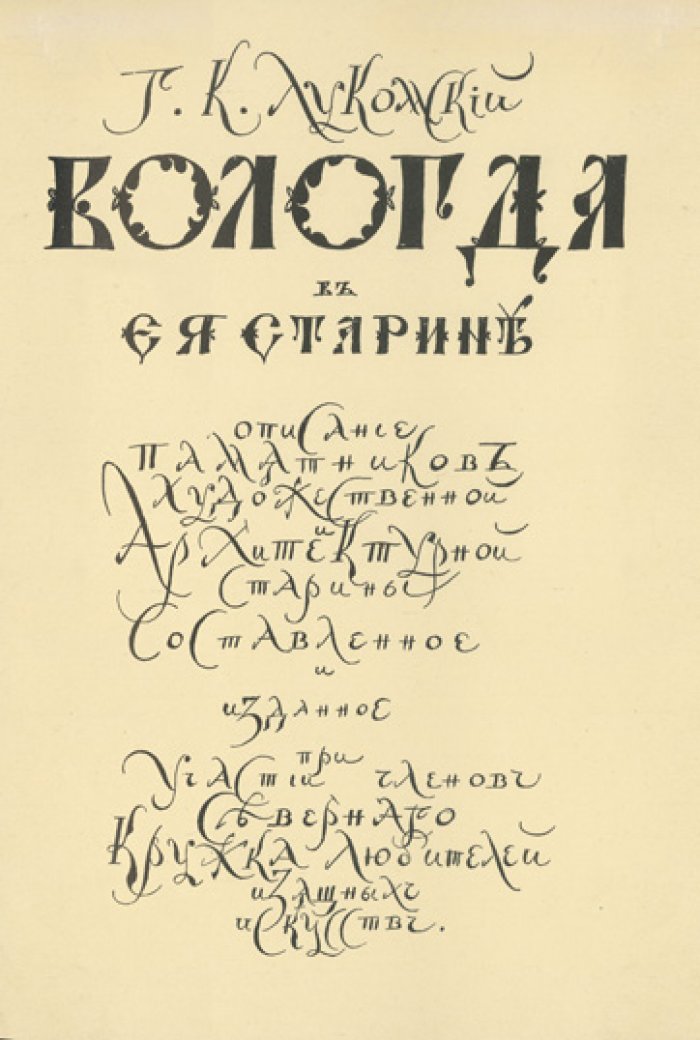 Г. К. Лукомскій
ВОЛОГДА
ВЪ
ЕЯ СТАРИНѢ
описаніе
памятниковъ
художественной
и
Архитектурной
старины
составленное
и
изданное
при
Участіи членовъ
Сѣвернаго
Кружка Любителей
изящныхъ
искусствъ.